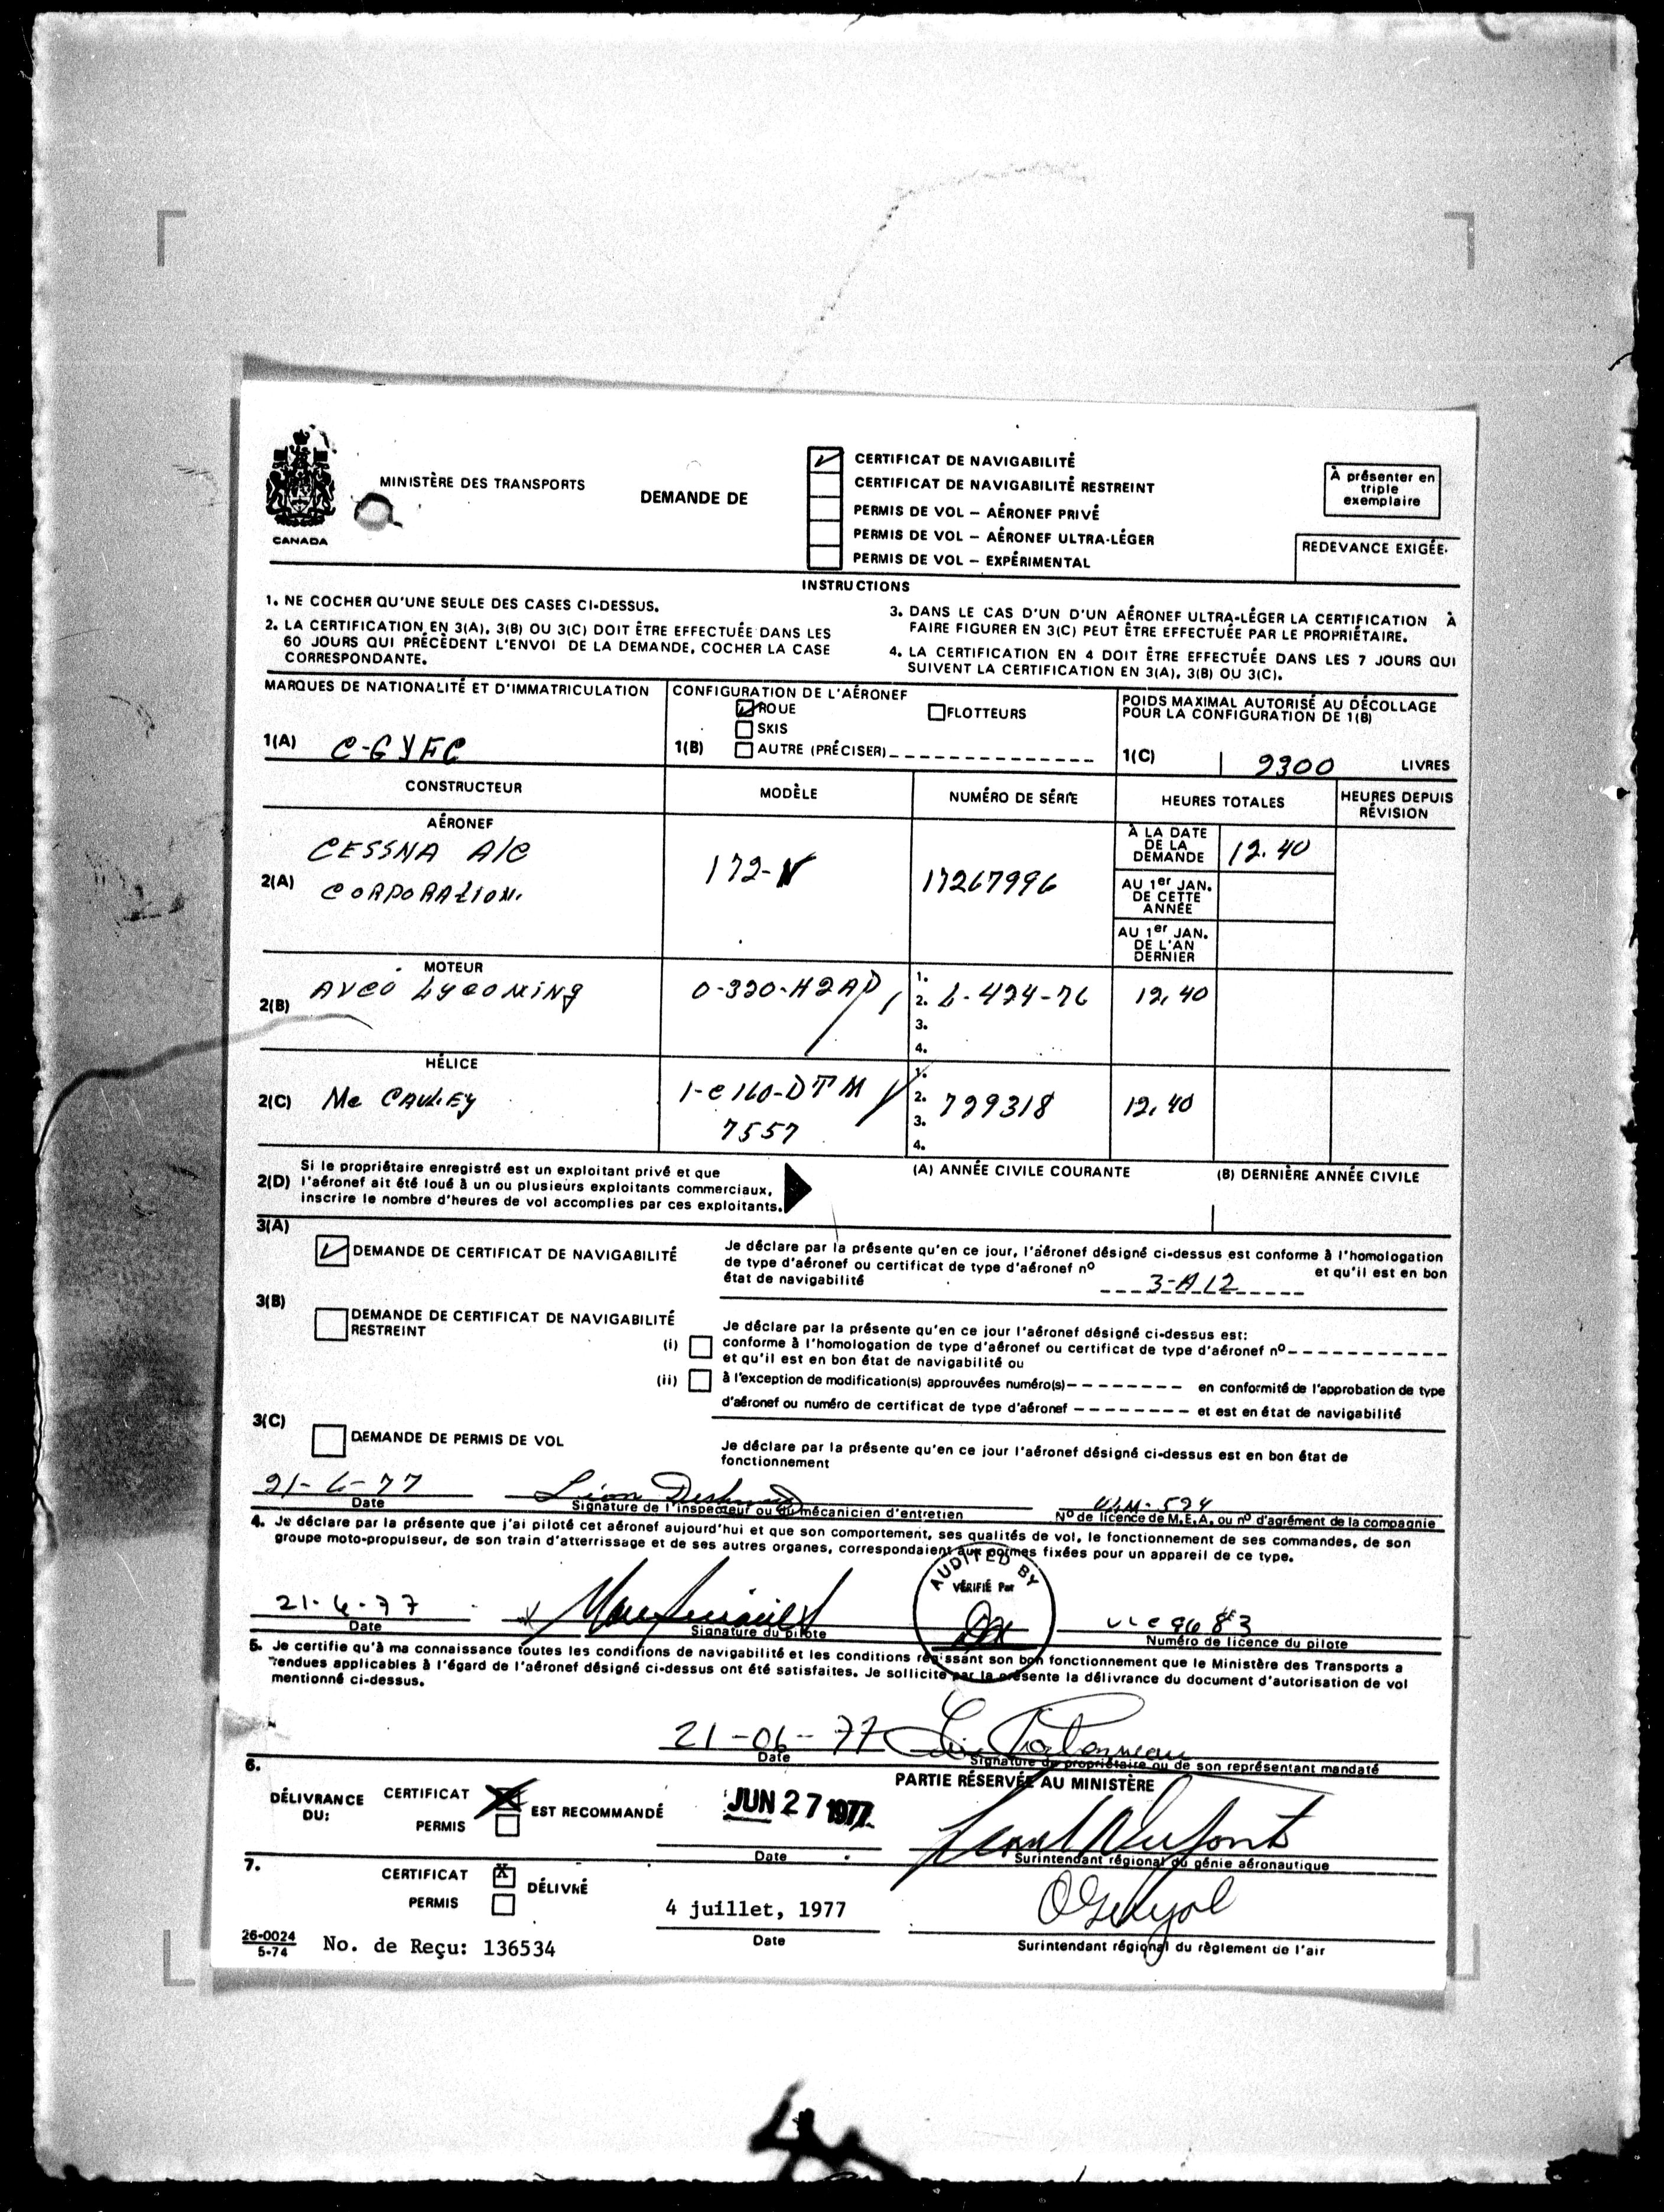 CANADA
MINISTÈRE DES TRANSPORTS
DEMANDE DE
CERTIFICAT DE NAVIGABILITÉ
CERTIFICAT DE NAVIGABILITÉ RESTREINT
PERMIS DE VOL – AÉRONEF PRIVÉ
PERMIS DE VOL – AÉRONEF ULTRA-LÉGER
PERMIS DE VOL – EXPÉRIMENTAL
À présenter en
triple
exemplaire
REDEVANCE EXIGÉE.
INSTRUCTIONS
1. NE COCHER QU'UNE SEULE DES CASES CI-DESSUS.
2. LA CERTIFICATION EN 3(A), 3(B) OU 3(C) DOIT ÊTRE EFFECTUÉE DANS LES
60 JOURS QUI PRÉCÈDENT L'ENVOI DE LA DEMANDE, COCHER LA CASE
CORRESPONDANTE.
3. DANS LE CAS D'UN D'UN AÉRONEF ULTRA-LÉGER LA CERTIFICATION À
FAIRE FIGURER EN 3(C) PEUT ÊTRE EFFECTUÉE PAR LE PROPRIÉTAIRE.
4. LA CERTIFICATION EN 4 DOIT ÊTRE EFFECTUÉE DANS LES 7 JOURS QUI
SUIVENT LA CERTIFICATION EN 3(A), 3(B) OU 3(C).
MARQUES DE NATIONALITÉ ET D'IMMATRICULATION
1(A) C-GYFC
CONFIGURATION DE L'AÉRONEF
ROUE
FLOTTEURS
SKIS
1(B) AUTRE (PRÉCISER)
POIDS MAXIMAL AUTORISÉ AU DÉCOLLAGE
POUR LA CONFIGURATION DE 1(B)
1(C) 2300 LIVRES
CONSTRUCTEUR
MODÈLE
NUMÉRO DE SÉRIE
HEURES TOTALES
HEURES DEPUIS
RÉVISION
AÉRONEF
2(A) CESSNA A/C
CORPORATION.
172-N
17267996
À LA DATE
DE LA
DEMANDE
12.40
AU 1er JAN.
DE CETTE
ANNÉE
AU 1er JAN.
DE L'AN
DERNIER
MOTEUR
2(B) AVCO LYCOMING
O-320-H2AD
1.
2. L-424-76
3.
4.
12.40
HÉLICE
2(C) Mc CAULEY
1-C160-DTM
7557
1.
2. 729318
3.
4.
12.40
2(D) Si le propriétaire enregistré est un exploitant privé et que
l'aéronef ait été loué à un ou plusieurs exploitants commerciaux,
inscrire le nombre d'heures de vol accomplies par ces exploitants.
(A) ANNÉE CIVILE COURANTE
(B) DERNIÈRE ANNÉE CIVILE
3(A)
DEMANDE DE CERTIFICAT DE NAVIGABILITÉ
Je déclare par la présente qu'en ce jour, l'aéronef désigné ci-dessus est conforme à l'homologation
de type d'aéronef ou certificat de type d'aéronef nº 3-A12 et qu'il est en bon
état de navigabilité
3(B)
DEMANDE DE CERTIFICAT DE NAVIGABILITÉ
RESTREINT
Je déclare par la présente qu'en ce jour l'aéronef désigné ci-dessus est:
(i) conforme à l'homologation de type d'aéronef ou certificat de type d'aéronef nº
et qu'il est en bon état de navigabilité ou
(ii) à l'exception de modification(s) approuvées numéro(s) en conformité de l'approbation de type
d'aéronef ou numéro de certificat de type d'aéronef et est en état de navigabilité
3(C)
DEMANDE DE PERMIS DE VOL
Je déclare par la présente qu'en ce jour l'aéronef désigné ci-dessus est en bon état de
fonctionnement
21-6-77
Léon
Date
Signature de l'inspecteur ou du mécanicien d'entretien
Nº de licence de M.E.A. ou nº d'agrément de la compagnie
4. Je déclare par la présente que j'ai piloté cet aéronef aujourd'hui et que son comportement, ses qualités de vol, le fonctionnement de ses commandes, de son
groupe moto-propulseur, de son train d'atterrissage et de ses autres organes, correspondaient aux normes fixées pour un appareil de ce type.
AUDITED BY
VÉRIFIÉ Par
21-6-77
Date
Signature du pilote
Numéro de licence du pilote
5. Je certifie qu'à ma connaissance toutes les conditions de navigabilité et les conditions régissant son bon fonctionnement que le Ministère des Transports a
rendues applicables à l'égard de l'aéronef désigné ci-dessus ont été satisfaites. Je sollicite par la présente la délivrance du document d'autorisation de vol
mentionné ci-dessus.
21-06-77
Date
Signature du propriétaire ou de son représentant mandaté
6.
PARTIE RÉSERVÉE AU MINISTÈRE
DÉLIVRANCE
DU:
CERTIFICAT
PERMIS
EST RECOMMANDÉ
JUN 27 1977
Date
Surintendant régional du génie aéronautique
7.
CERTIFICAT X
PERMIS
DÉLIVRÉ
4 juillet, 1977
Date
Surintendant régional du règlement de l'air
26-0024
5-74
No. de Reçu: 136534